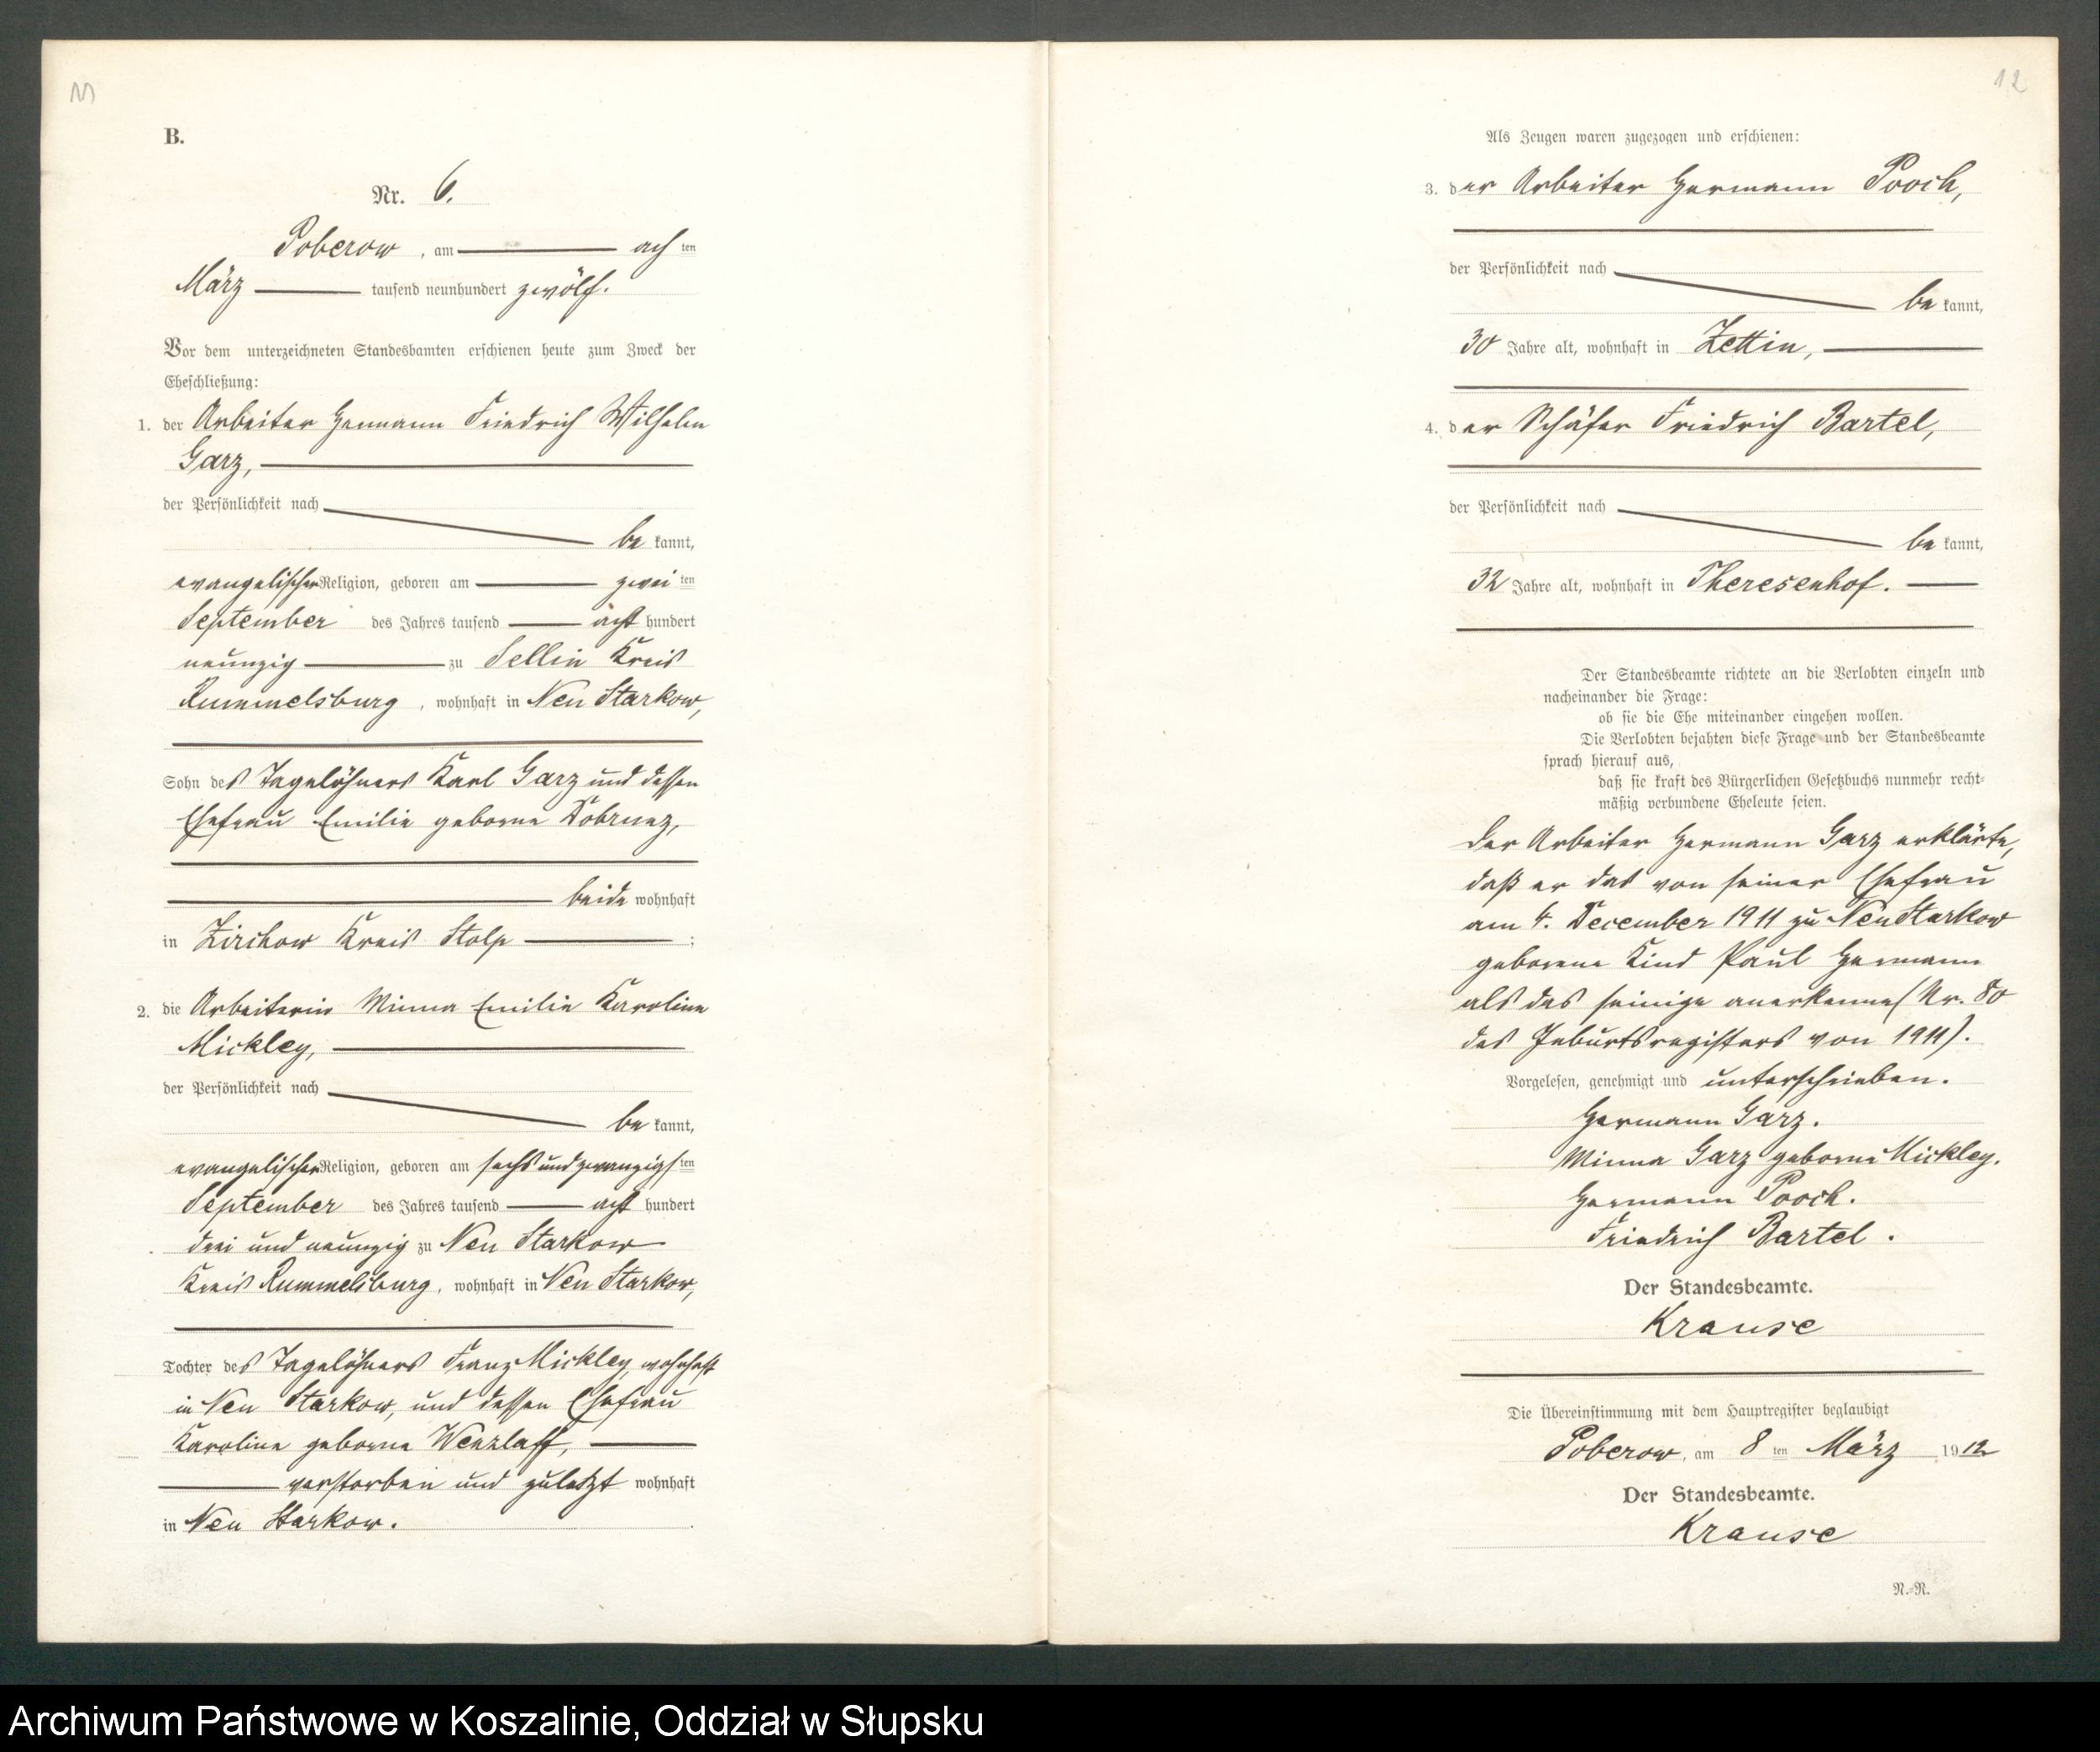 11
B.
Nr. 6.
Poberow, am ach ten
März tausend neunhundert zwölf.
Vor dem unterzeichneten Standesbamten erschienen heute zum Zweck der
Eheschließung:
1. der Arbeiter Hermann Friedrich Wilhelm
Garz,
der Persönlichkeit nach
be kannt,
evangelischer Religion, geboren am zwei ten
September des Jahres tausend acht hundert
neunzig zu Sellin Kreis
Rummelsburg, wohnhaft in Neu Starkow,
Sohn des Tagelöhners Karl Garz und dessen
Ehefrau Emilie geborne
beide wohnhaft
in Zirchow Kreis Stolp ;
2. die Arbeiterin Minna Emilie Karoline
Mickley,
der Persönlichkeit nach
be kannt,
evangelischer Religion, geboren am sechsundzwanzigs ten
September des Jahres tausend acht hundert
drei und neunzig zu Neu Starkow
Kreis Rummelsburg, wohnhaft in Neu Starkow,
Tochter des Tagelöhners Franz Mickley, wohnhaft
in Neu Starkow, und dessen Ehefrau
Karoline geborne Wenzlaff,
verstorben und zuletzt wohnhaft
in Neu Starkow.
12
Als Zeugen waren zugezogen und erschienen:
3. der Arbeiter Hermann Pooch,
der Persönlichkeit nach
be kannt,
30 Jahre alt, wohnhaft in Zettin,
4. der Schäfer Friedrich Bartel,
der Persönlichkeit nach
be kannt,
32 Jahre alt, wohnhaft in Theresenhof.
Der Standesbeamte richtete an die Verlobten einzeln und
nacheinander die Frage:
ob sie die Ehe miteinander eingehen wollen.
Die Verlobten bejahten diese Frage und der Standesbeamte
sprach hierauf aus,
daß sie kraft des Bürgerlichen Gesetzbuchs nunmehr recht-
mäßig verbundene Eheleute seien.
Der Arbeiter Hermann Garz erklärte,
daß er das von seiner Ehefrau
am 4. December 1911 zu Neu Starkow
geborene Kind Paul Hermann
als das seinige anerkenne (Nr. 80
des Geburtsregisters von 1911).
Vorgelesen, genehmigt und unterschrieben.
Hermann Garz.
Minna Garz geborne Mickley.
Hermann Pooch.
Friedrich Bartel.
Der Standesbeamte.
Krause
Die Übereinstimmung mit dem Hauptregister beglaubigt
Poberow, am 8 ten März 1912
Der Standesbeamte.
Krause
N.-N.
Archiwum Państwowe w Koszalinie, Oddział w Słupsku